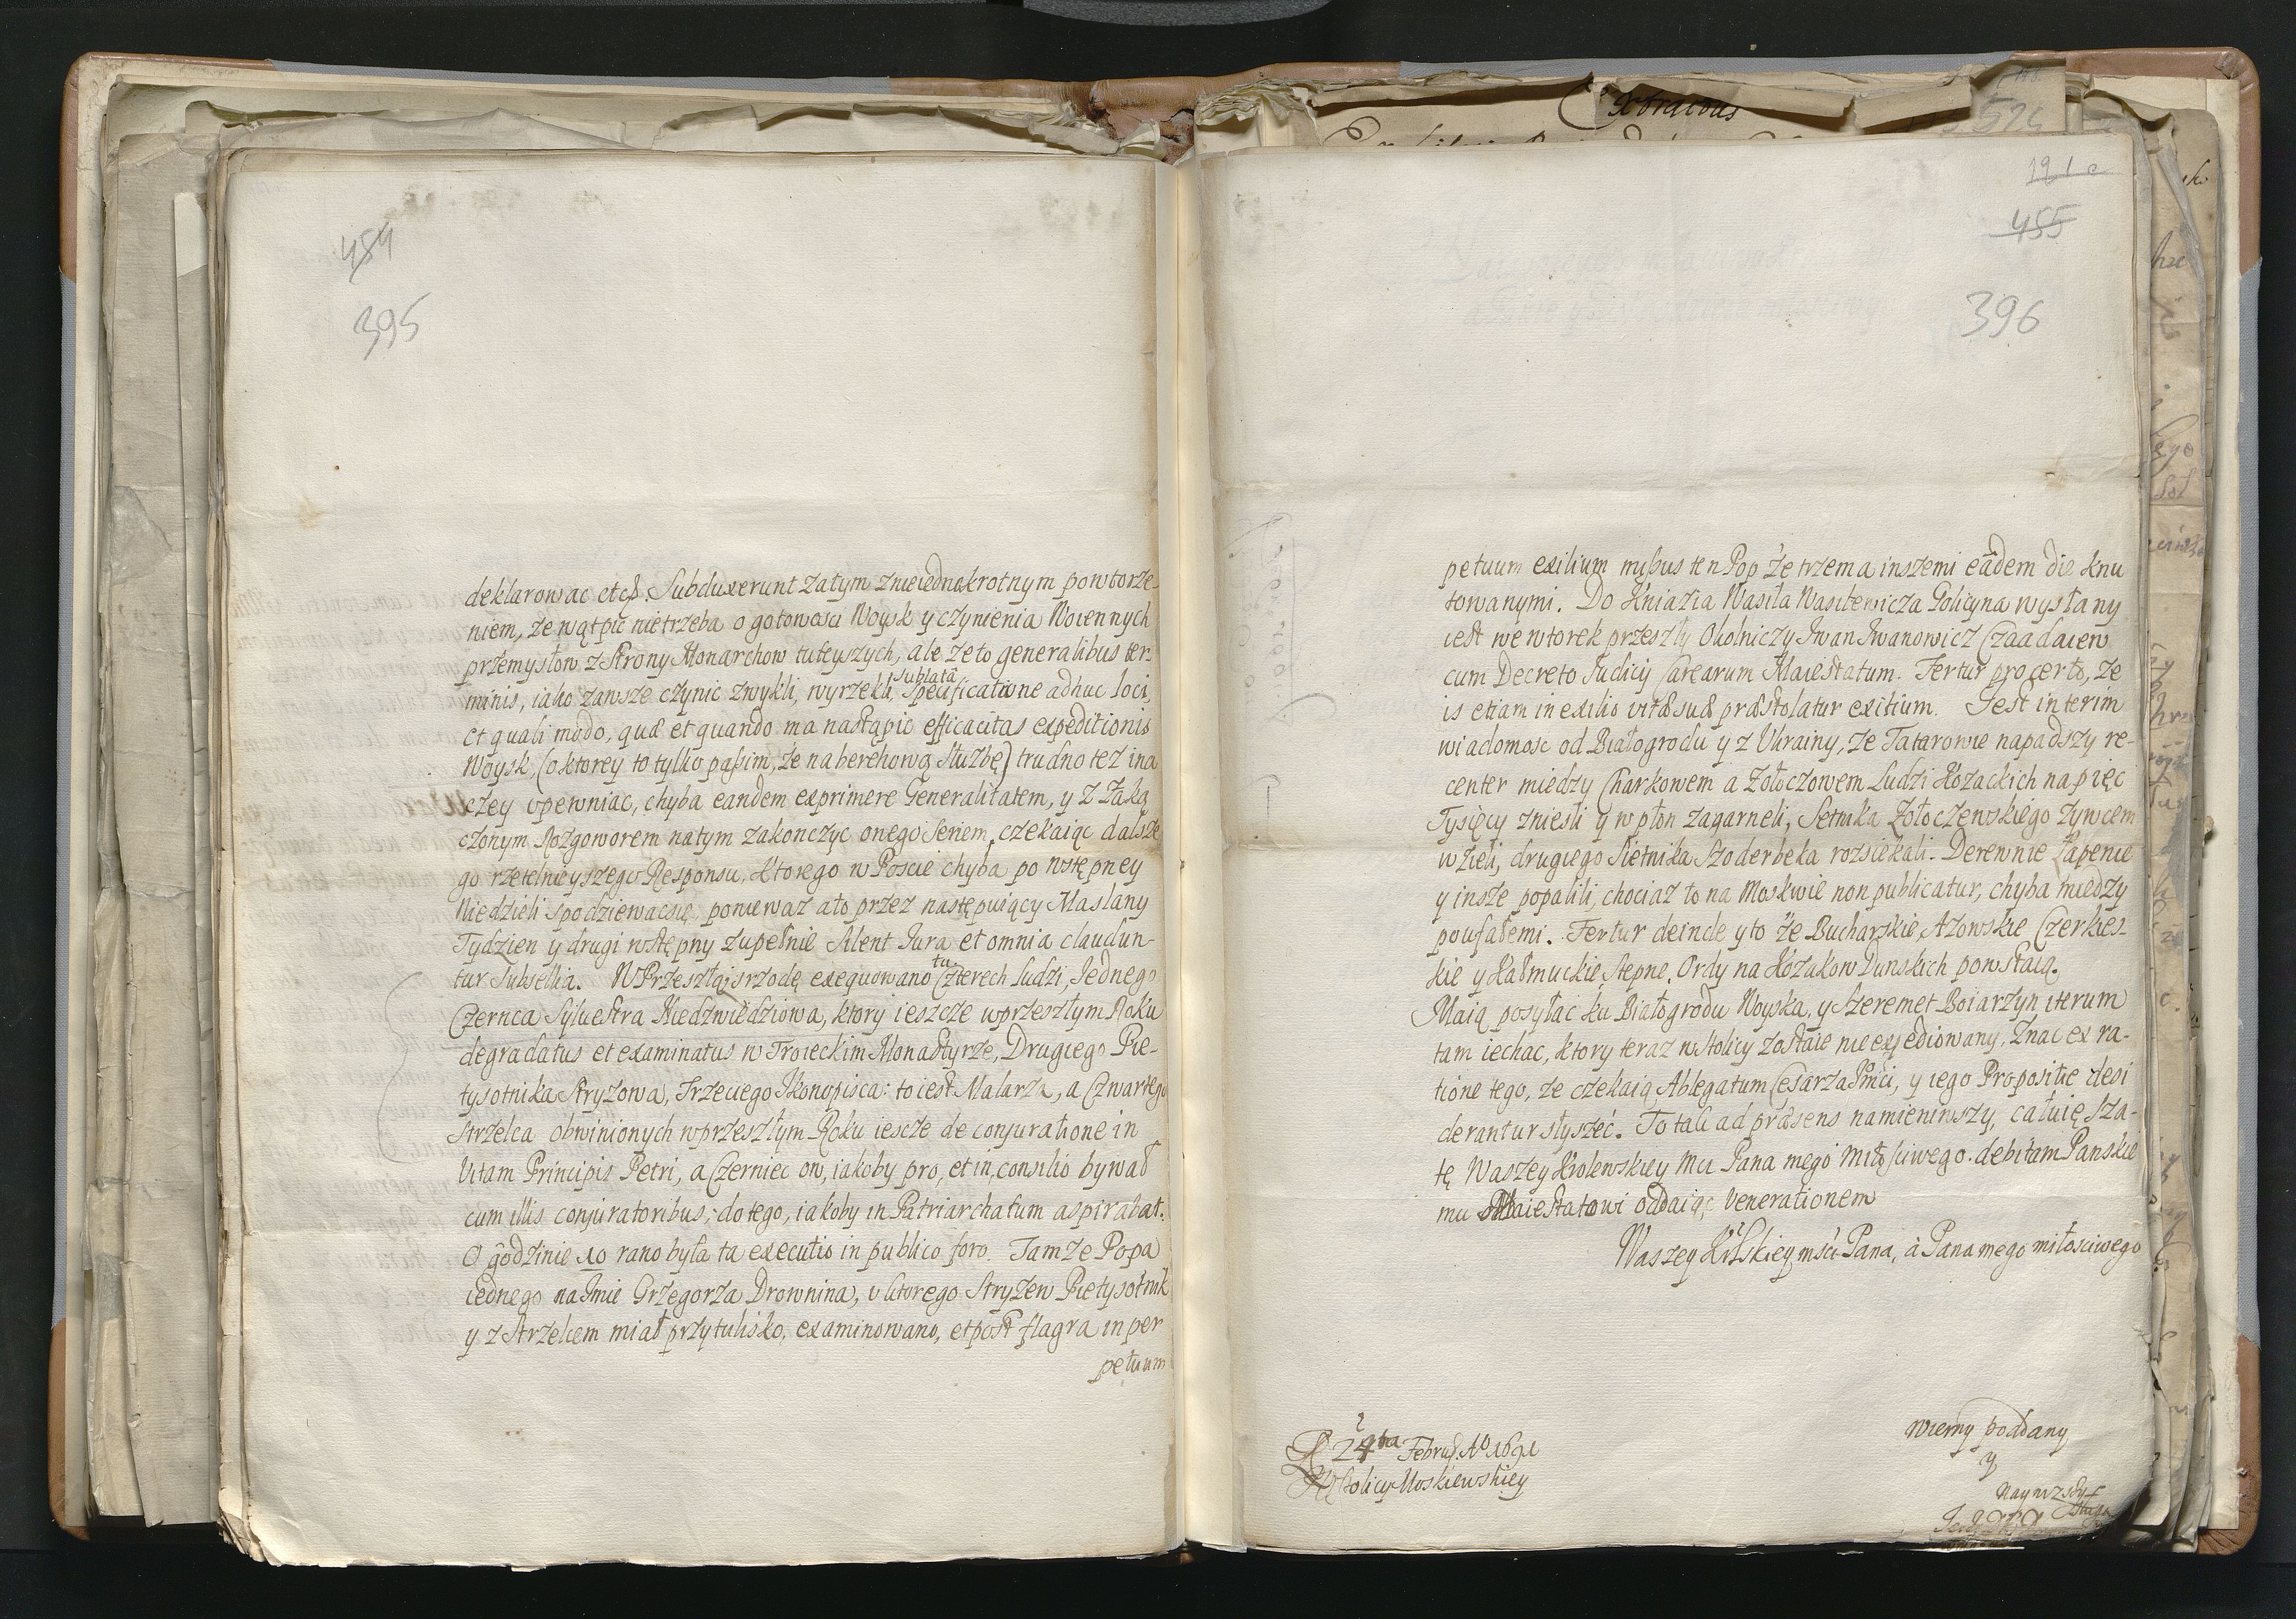 454
395
deklarowac etc. Subduxerunt zatym znieiednokrotnym powtorze-
niem, że wątpic nietrzeba o gotowosci Woysk y czynienia Woiennych
przemysłow z Strony Monarchow tuteyszych, ale że to generalibus ter-
minis, iako zawsze czynic zwykli, wyrzekli, sublatâ Specificatione adhuc loci,
et quali modo, quâ et quando ma nastąpic efficacitas expeditionis
Woysk, (o ktorey to tylko passim, że na berehową służbę) trudno też ina
czey vpewniac, chyba eandem exprimere Generalitatem, y z
czonym Rozgoworem natym zakonczyc onego Seriem, czekaiąc dalsze
go rzetelnieyszego Responsu, ktorego w Poscie chyba po wstępney
Niedzieli spodziewacsię poniewaz a to przez następuiący Maslany
Tydzien y drugi wstępny zupełnie silent Iura et omnia claudun-
tur Subsellia. W Przeszłą srzodę exequowano tu Czterech ludzi, Jednego
Czernca Sylvestra Niedzwiedziowa, ktory ieszcze wprzeszłym Roku
degradatus et examinatus w Troieckim Monastyrze, Drugiego Pie-
tysotnika Stryzowa, Trzeciego Ikonopisca: to iest Malarza, a Czwartego
Strzelca obwinionych wprzeszłym Roku iescze de conjuratione in
Vitam Principis Petri, a Czerniec on, iakoby pro, et in, consilio bywał
cum illis conjuratoribus; do tego, iakoby in Patriarchatum aspirabat.
O godzinie 10 rano była ta executio in publico foro. Tamże Popa
iednego na Imie Grzegorza Drownina, v ktorego Stryzew Pietysotnik
y z Strzelcem miał przytulisko, examinowano, et post flagra in per
petuum
455
396
petuum exilium missus ten Pop że trzema inszemi eâdem die knu
towanymi. Do Kniazia Wasila Wasilewicza Golicyna wysłany
iest we wtorek przeszły Okolniczy Iwan Iwanowicz Czaadaiew
cum Decreto Iudicij Carearum Maiestatum. Fertur pro certo, że
is etiam in exilio vitæ suæ præstolatur exitium. Jest interim
wiadomosc od Białogrodu y z Ukrainy, że Tatarowie napadszy re-
center miedzy Charkowem a Zołoczowem Ludzi Kozackich na pięc
Tysięcy zniesli y w płon zagarneli, Setnika Zołoczewskiego żywcem
wzieli, drugiego Sietnika Szoderbeka rozsiekali. Derewnie Łapenie
y insze popalili, chociaz to na Moskwie non publicatur, chyba miedzy
poufałemi. Fertur deinde y to że Bucharskie Azowskie Czerkies-
kie y Kałmuckie Stepne. Ordy na Kozakow Dunskich powstaią.
Maią posyłac ku Białogrodu Woyska, y Szeremet Boiarzyn iterum
tam iechac, ktory teraz w stolicy zostaie nie expediowany. Znac ex ra-
tione tego, że czekaią Ablegatum Cesarza Imci, y iego Propositie desi
derantur słyszeć. To tak ad præsens namieniwszy, całuię Sza-
tę Waszey Krolewskiey Mci Pana mego Miłosciwego. debitam Panskie
mu Maiestatowi oddaiąc Venerationem
Waszey Krlskiey msci Pana, â Pana mego miłosciwego
D 24ta Februa. Ao 1691
W Stolicy Moskiewskiey
Wierny poddany
y
Naynizszy
Sługa